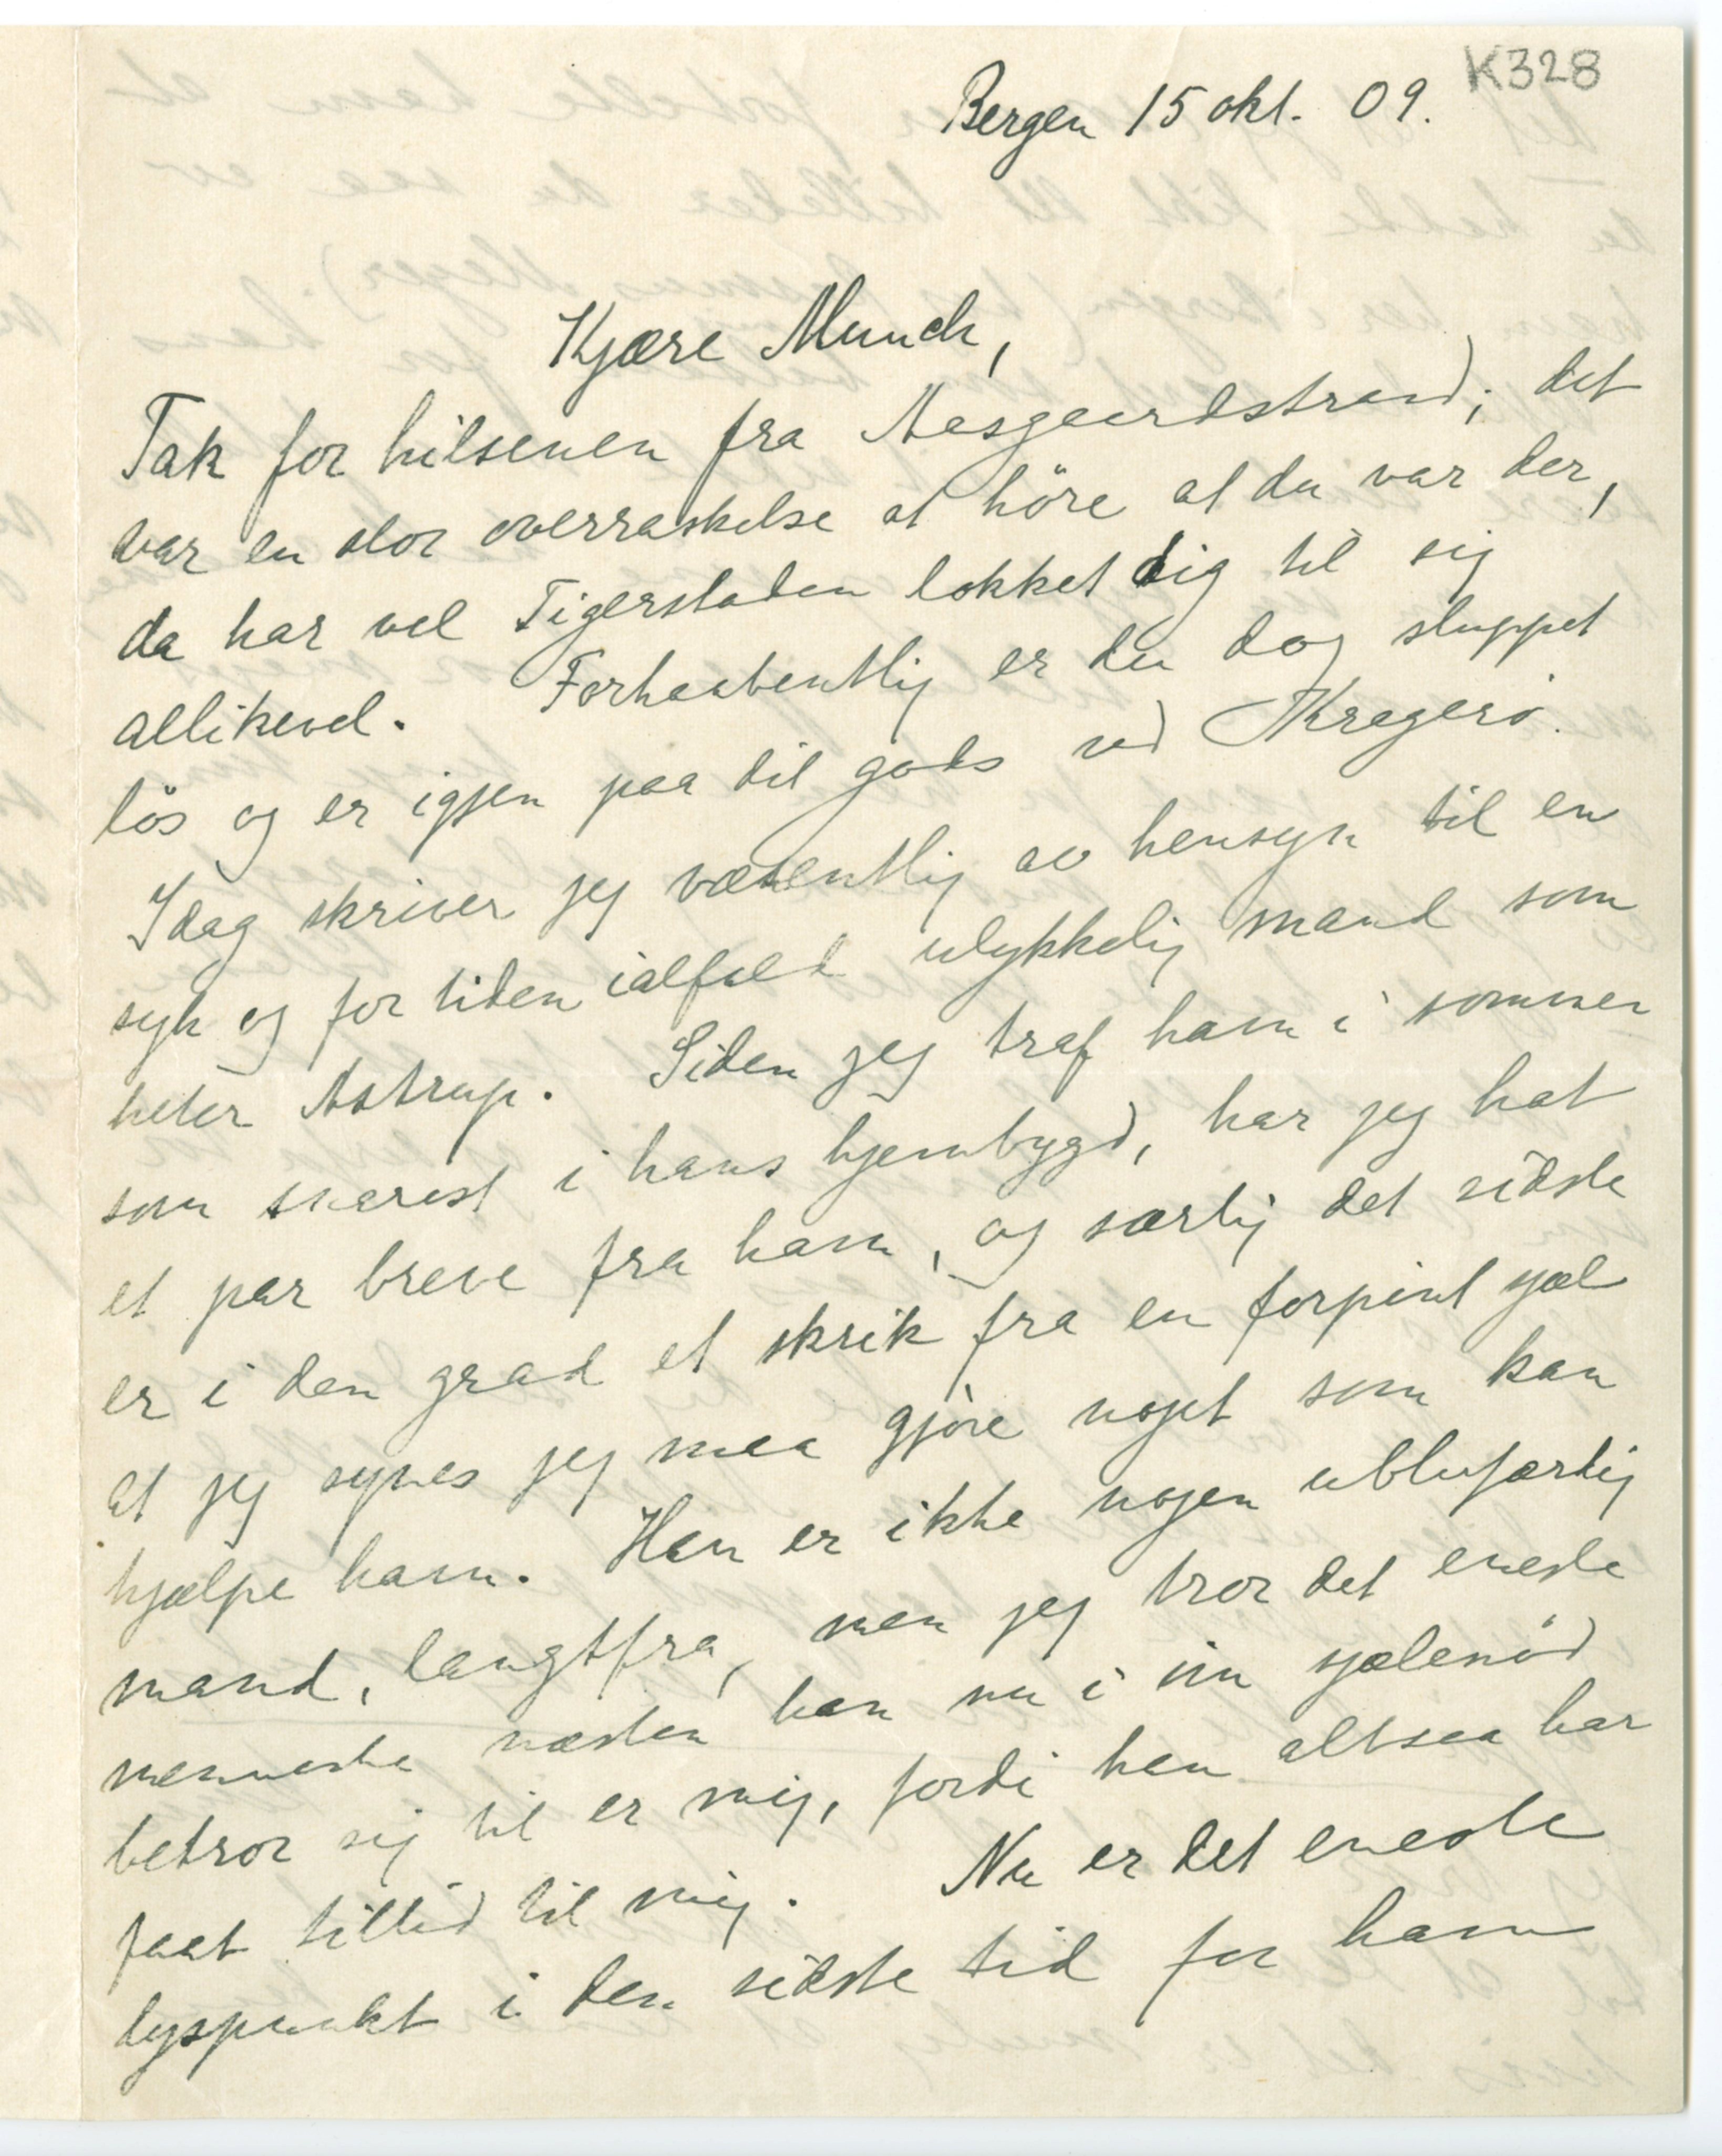 K328
Bergen 15 okt. 09.
Kjære Munch,
Tak for hilsenen fra Aasgaardstrand; det
var en stor overraskelse at höre at du var der,
da har vel Tigerstaden lokket dig til sig
allikevel. Forhaabentlig er du dog sluppet
lös og er igjen paa dit gods ved Kragerö.
Idag skriver jeg væsentlig av hensyn til en
syk og for tiden ialfald ulykkelig mand som
heter Astrup. Siden jeg traf ham i sommer
som snarest i hans hjembygd, har jeg hat
et par breve fra ham, og særlig det sidste
er i den grad et skrik fra en forpint sjæl
at jeg synes jeg maa gjöre noget som kan
hjælpe ham. Han er ikke nogen ublufærdig
mand, langtfra, men jeg tror det eneste
menneske næsten han nu i sin sjælenöd
betror sig til er mig, fordi han altsaa har
faat tillid til mig. Nu er det eneste
lyspunkt i den sidste tid for ham